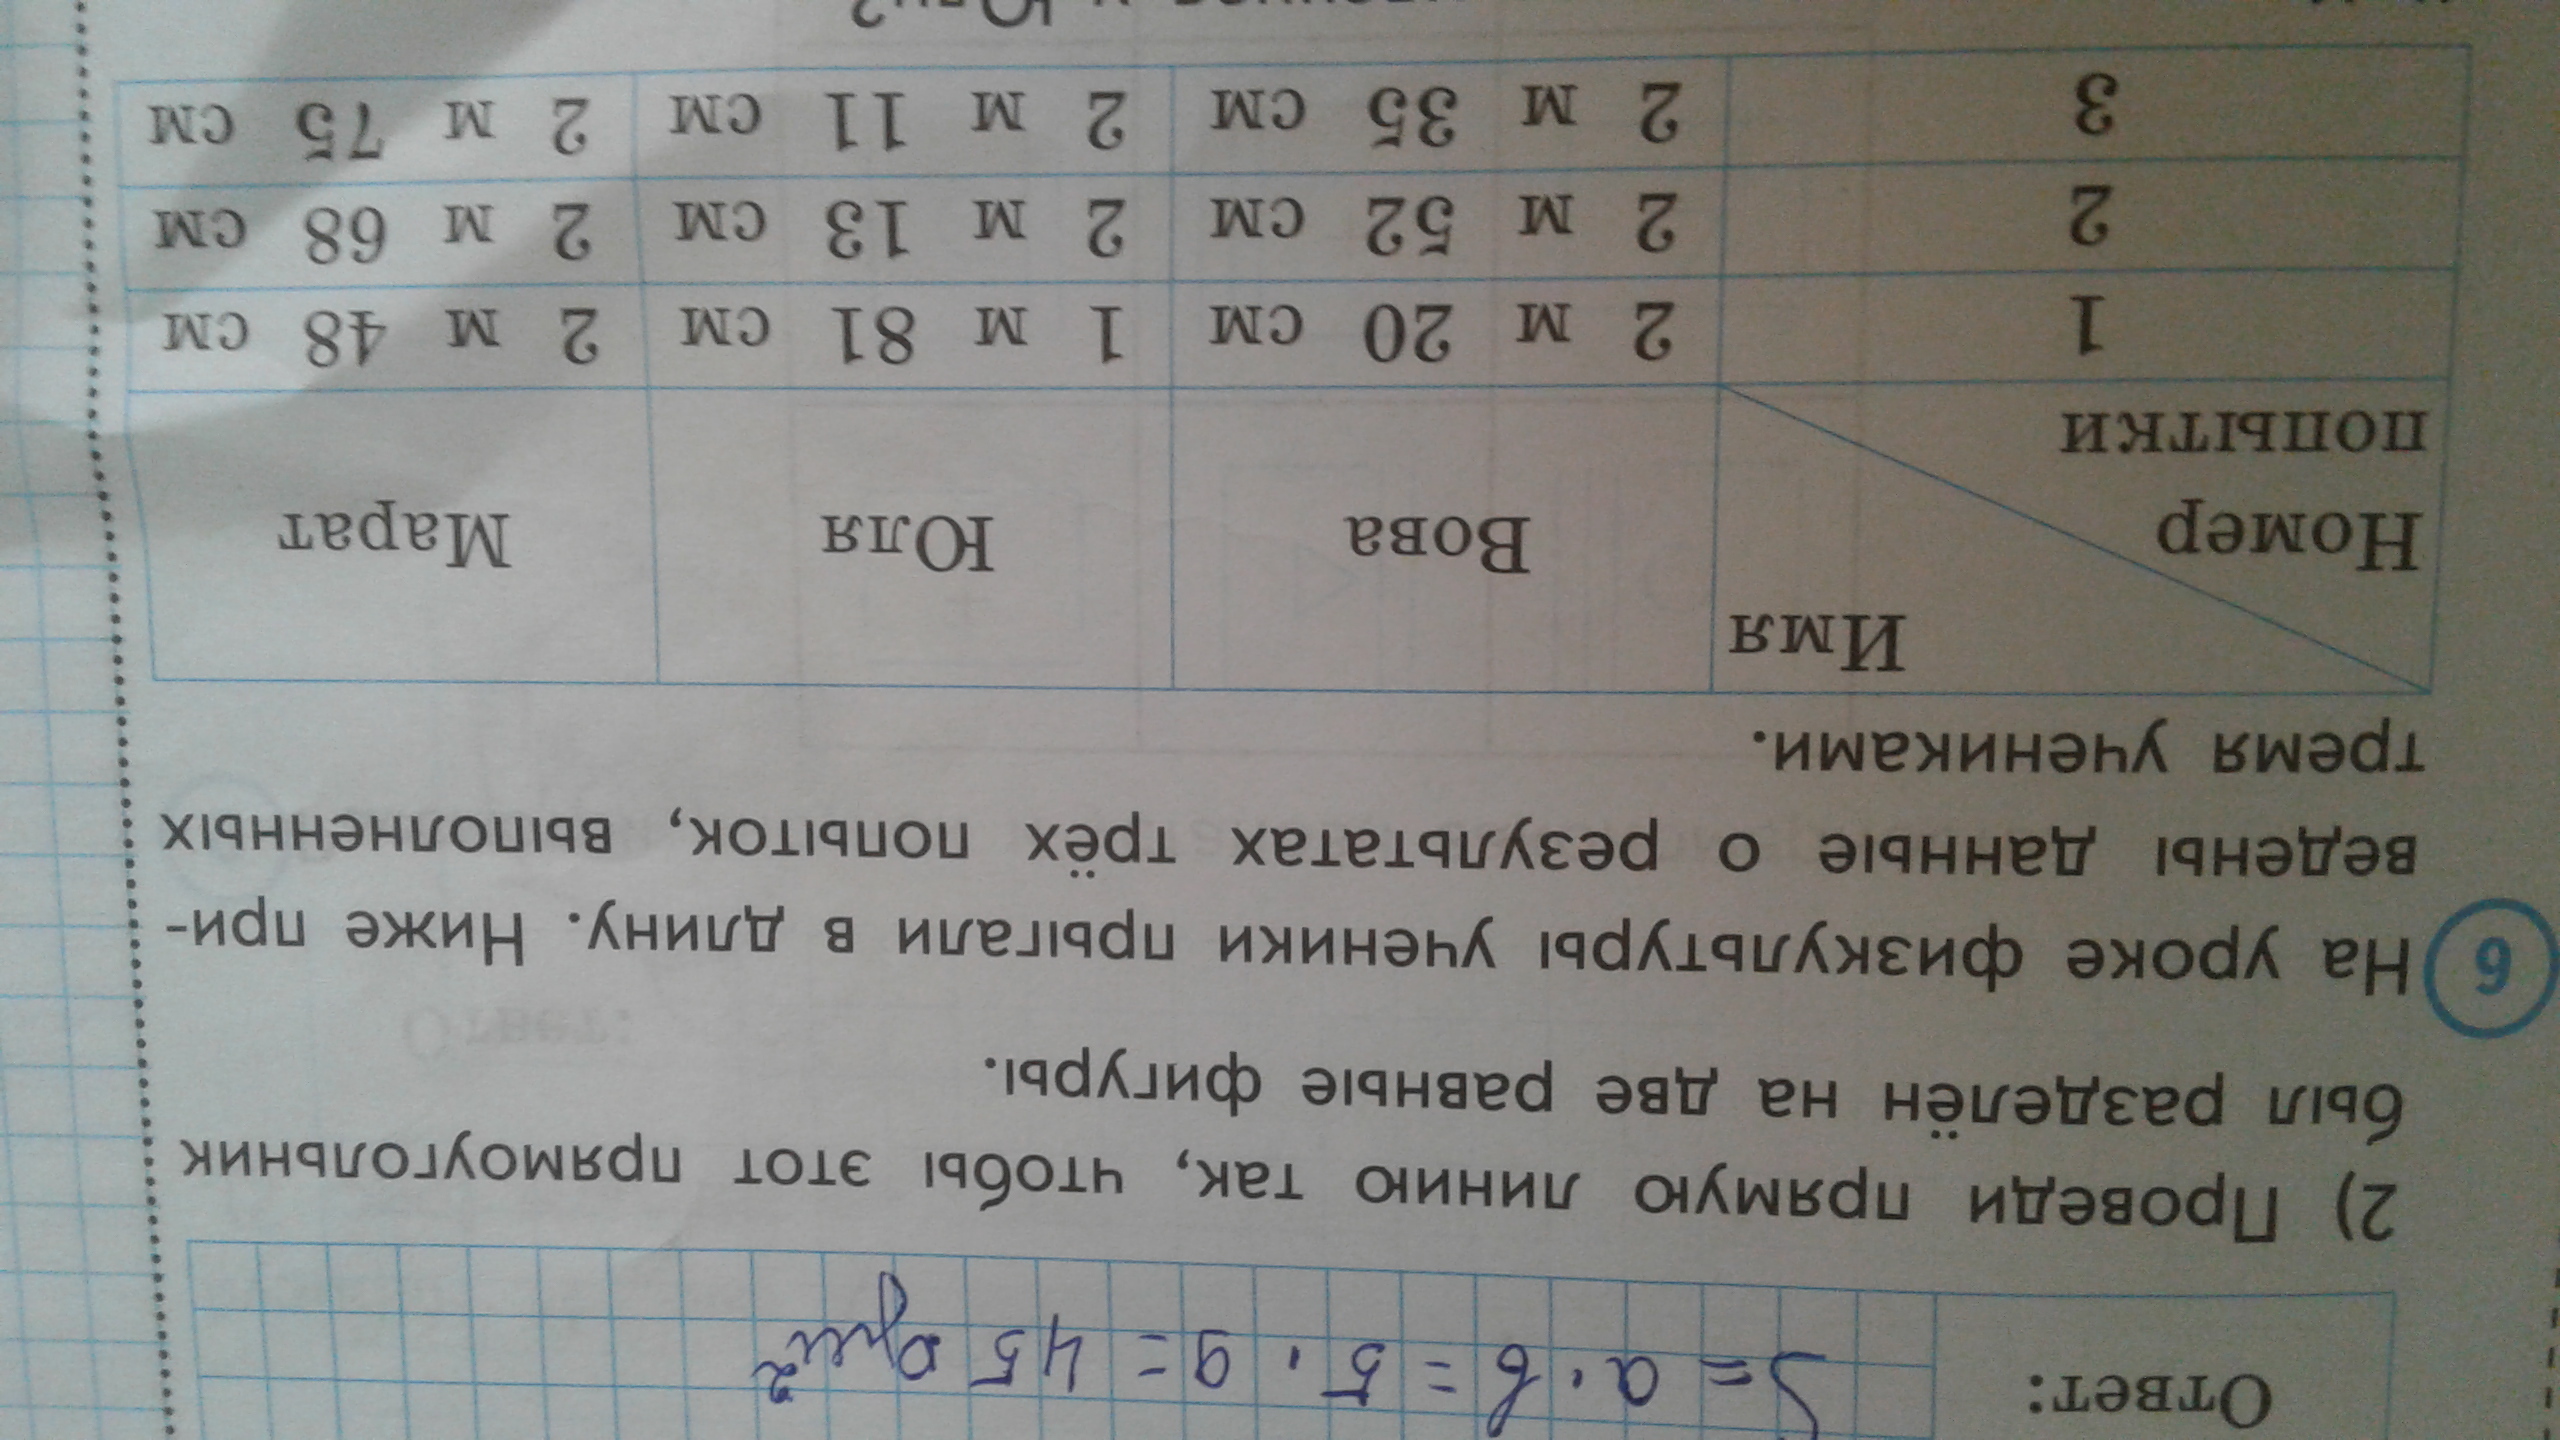 Ответ:
S = a · b = 5 · 9 = 45 дм²
2) Проведи прямую линию так, чтобы этот прямоугольник
был разделён на две равные фигуры.
6 На уроке физкультуры ученики прыгали в длину. Ниже при-
ведены данные о результатах трёх попыток, выполненных
тремя учениками.
Имя
Номер
попытки
Вова Юля Марат
1 2 м 20 см 1 м 81 см 2 м 48 см
2 2 м 52 см 2 м 13 см 2 м 68 см
3 2 м 35 см 2 м 11 см 2 м 75 см
Юли?